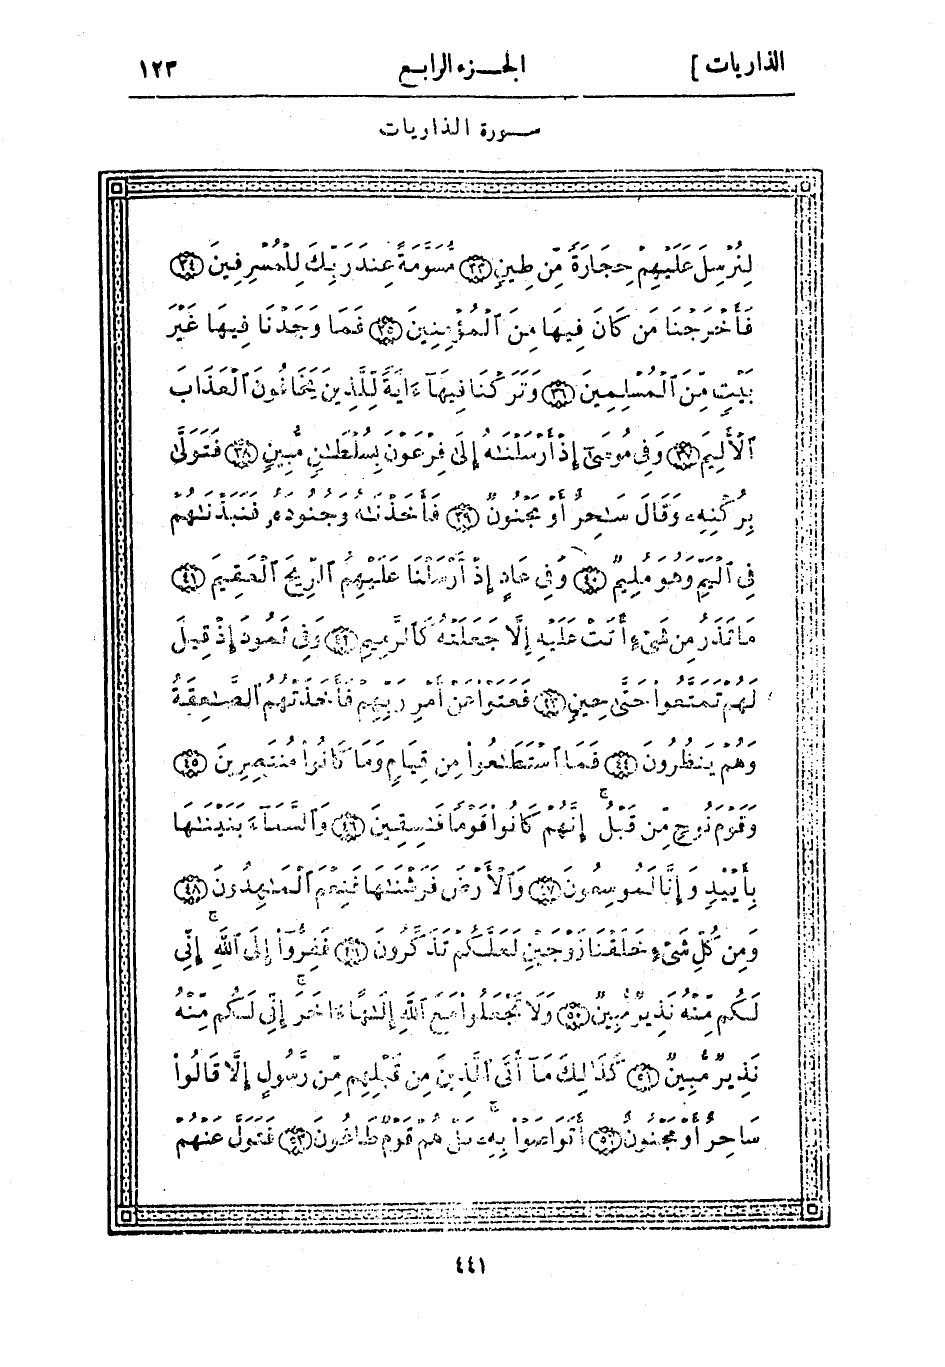 الذاريات ] الجزء الرابع ١٢٣
سورة الذاريات
لِنُرْسِلَ عَلَيْهِمْ حِجَارَةً مِّن طِينٍ ٣٣ مُّسَوَّمَةً عِندَ رَبِّكَ لِلْمُسْرِفِينَ ٣٤
فَأَخْرَجْنَا مَن كَانَ فِيهَا مِنَ ٱلْمُؤْمِنِينَ ٣٥ فَمَا وَجَدْنَا فِيهَا غَيْرَ
بَيْتٍ مِّنَ ٱلْمُسْلِمِينَ ٣٦ وَتَرَكْنَا فِيهَآ ءَايَةً لِّلَّذِينَ يَخَافُونَ ٱلْعَذَابَ
ٱلْأَلِيمَ ٣٧ وَفِى مُوسَىٰٓ إِذْ أَرْسَلْنَٰهُ إِلَىٰ فِرْعَوْنَ بِسُلْطَٰنٍ مُّبِينٍ ٣٨ فَتَوَلَّىٰ
بِرُكْنِهِۦ وَقَالَ سَٰحِرٌ أَوْ مَجْنُونٌ ٣٩ فَأَخَذْنَٰهُ وَجُنُودَهُۥ فَنَبَذْنَٰهُمْ
فِى ٱلْيَمِّ وَهُوَ مُلِيمٌ ٤٠ وَفِى عَادٍ إِذْ أَرْسَلْنَا عَلَيْهِمُ ٱلرِّيحَ ٱلْعَقِيمَ ٤١
مَا تَذَرُ مِن شَىْءٍ أَتَتْ عَلَيْهِ إِلَّا جَعَلَتْهُ كَٱلرَّمِيمِ ٤٢ وَفِى ثَمُودَ إِذْ قِيلَ
لَهُمْ تَمَتَّعُوا۟ حَتَّىٰ حِينٍ ٤٣ فَعَتَوْا۟ عَنْ أَمْرِ رَبِّهِمْ فَأَخَذَتْهُمُ ٱلصَّٰعِقَةُ
وَهُمْ يَنظُرُونَ ٤٤ فَمَا ٱسْتَطَٰعُوا۟ مِن قِيَامٍ وَمَا كَانُوا۟ مُنتَصِرِينَ ٤٥
وَقَوْمَ نُوحٍ مِّن قَبْلُ ۚ إِنَّهُمْ كَانُوا۟ قَوْمًا فَٰسِقِينَ ٤٦ وَٱلسَّمَآءَ بَنَيْنَٰهَا
بِأَيْي۟دٍ وَإِنَّا لَمُوسِعُونَ ٤٧ وَٱلْأَرْضَ فَرَشْنَٰهَا فَنِعْمَ ٱلْمَٰهِدُونَ ٤٨
وَمِن كُلِّ شَىْءٍ خَلَقْنَا زَوْجَيْنِ لَعَلَّكُمْ تَذَكَّرُونَ ٤٩ فَفِرُّوٓا۟ إِلَى ٱللَّهِ ۚ إِنِّى
لَكُم مِّنْهُ نَذِيرٌ مُّبِينٌ ٥٠ وَلَا تَجْعَلُوا۟ مَعَ ٱللَّهِ إِلَٰهًا ءَاخَرَ ۚ إِنِّى لَكُم مِّنْهُ
نَذِيرٌ مُّبِينٌ ٥١ كَذَٰلِكَ مَآ أَتَى ٱلَّذِينَ مِن قَبْلِهِم مِّن رَّسُولٍ إِلَّا قَالُوا۟
سَاحِرٌ أَوْ مَجْنُونٌ ٥٢ أَتَوَاصَوْا۟ بِهِۦ ۚ بَلْ هُمْ قَوْمٌ طَاغُونَ ٥٣ فَتَوَلَّ عَنْهُمْ
٤٤١